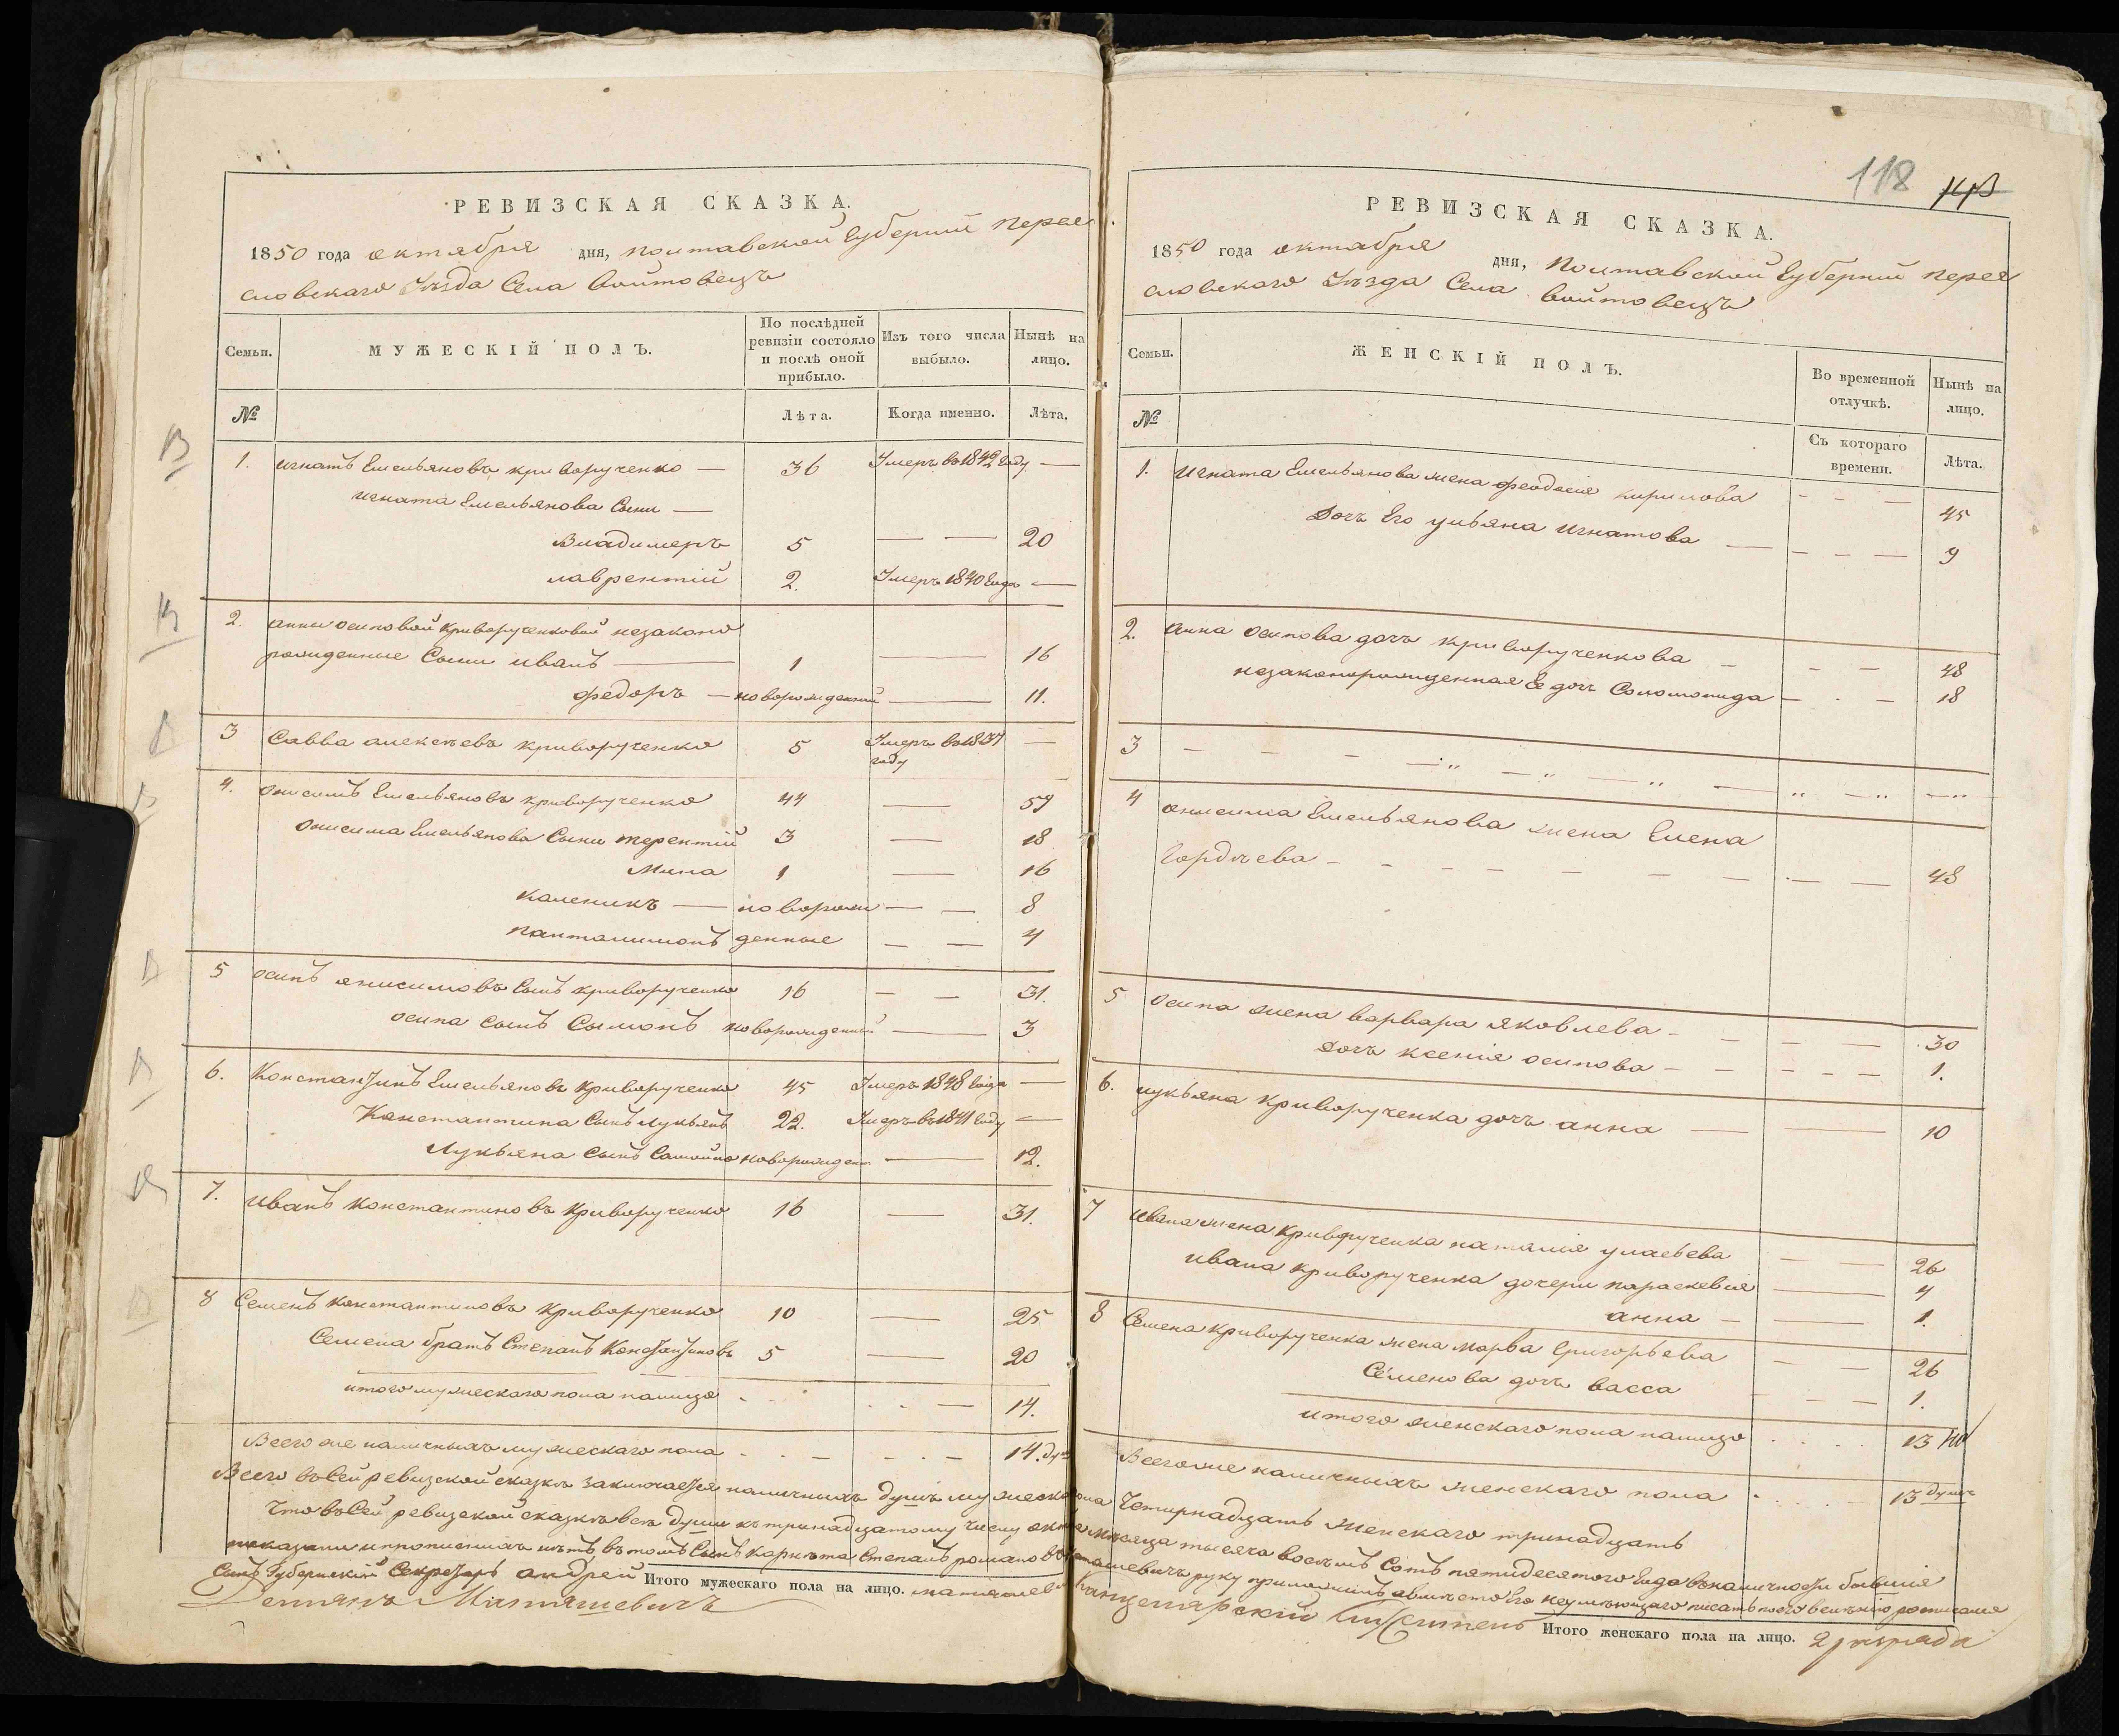 РЕВИЗСКАЯ СКАЗКА.
1850 года октября дня, Полтавской Губерніи Перее
словскаго Уѣзда Села Войтовецъ
Семьи.
МУЖЕСКІЙ ПОЛЪ.
По послѣдней ревизіи состояло и послѣ оной прибыло.
Изъ того числа выбыло.
Нынѣ на лицо.
№
Лѣта.
Когда именно.
Лѣта.
1. Игнатъ Емельяновъ криворученко — 36 Умеръ въ 1842 году —
Игната Емельянова Сыни —
Владимеръ 5 — — 20
лаврентій 2. Умеръ 1840 Года —
2. анни осиповой криворученковой незаконо
рожденные Сыни иванъ — 1 — 16
федоръ — новорожденний — 11.
3 Савва алексѣевъ криворученко 5 Умеръ въ 1837 году —
4. Онисимъ Емельяновъ криворученко 44 — 59
Онисима Емельянова Сыни терентій 3 — 18
Мина 1 — 16
каленикъ — новорож — — 8
панталимонъ денные — — 4
5 осипъ анисимовъ Сынъ криворученко 16 — — 31.
осипа сынъ Сымонъ новорожденний — 3
6. Константинъ Емельяновъ Криворученко 45 Умеръ 1848 Года —
Константина Сынъ Лукьянъ 22. Умеръ въ 1841 Году —
Лукьяна Сынъ Самойло новорожден — 12.
7. Иванъ Константиновъ Криворученко 16 — 31.
8 Семенъ Константиновъ Криворученко 10 — 25
Семена братъ Степанъ Константиновъ 5 — 20
итого мужескаго пола налицо - - - - — 14.
Всего же наличныхъ мужескаго пола - - — - - — 14. душ
118 143
РЕВИЗСКАЯ СКАЗКА.
1850 года октабря дня, Полтавской Губерніи перея
словскаго Уѣзда Села войтовецъ
Семьи.
ЖЕНСКІЙ ПОЛЪ.
Во временной отлучкѣ.
Нынѣ на лицо.
№
Съ котораго времени.
Лѣта.
1. Игната Емельянова жена феодосія кирилова - - — 45
Дочь Его ульяна Игнатова — — - — 9
2. Анна осипова дочь криворученкова — - - — 48
незаконорожденная Ее дочь Соломонида — - — 18
3 — — — —·" —·" —" —" —" —"
4 онисима Емельянова жена Елена
Гордѣева - — - — — — — — — — 48
5 Осипа жена варвара яковлева — — — — 30
Дочь ксенія осипова — — - — — 1.
6. лукьяна Криворученка дочь анна — — 10
7 Ивана жена криворученка наталія уласьева — — 26
ивана Криворученка дочери параскевия — 4
анна — — 1.
8 Семена Криворученка жена марва Григорьева — — 26
Семенова дочь васса — - — 1.
итого женскаго пола налицо - - - - 13
Всего же наличныхъ женскаго пола - - - - 13 душъ
Всего въ сей ревизской сказкѣ заключается наличныхъ душъ мужеска пола Четирнадцать женскаго тринадцать
Что въ сей ревизской сказкѣ всѣ души къ тринадцатому числу октя мѣсяца тысяча восемъ Сотъ пятидесятого Года въ наличности бывшіе
показани и прописнихъ нѣтъ въ томъ Сынъ Карнета Степанъ романовъ руку приложилъ а вмѣсто Его неумѣющаго писать по его веленію росписался
Сынъ Губернский Секретарь андрей
Итого мужескаго пола на лицо.
Демянъ Матяшевичъ
Канцелярскій Служитель
Итого женскаго пола на лицо.
2 разряда